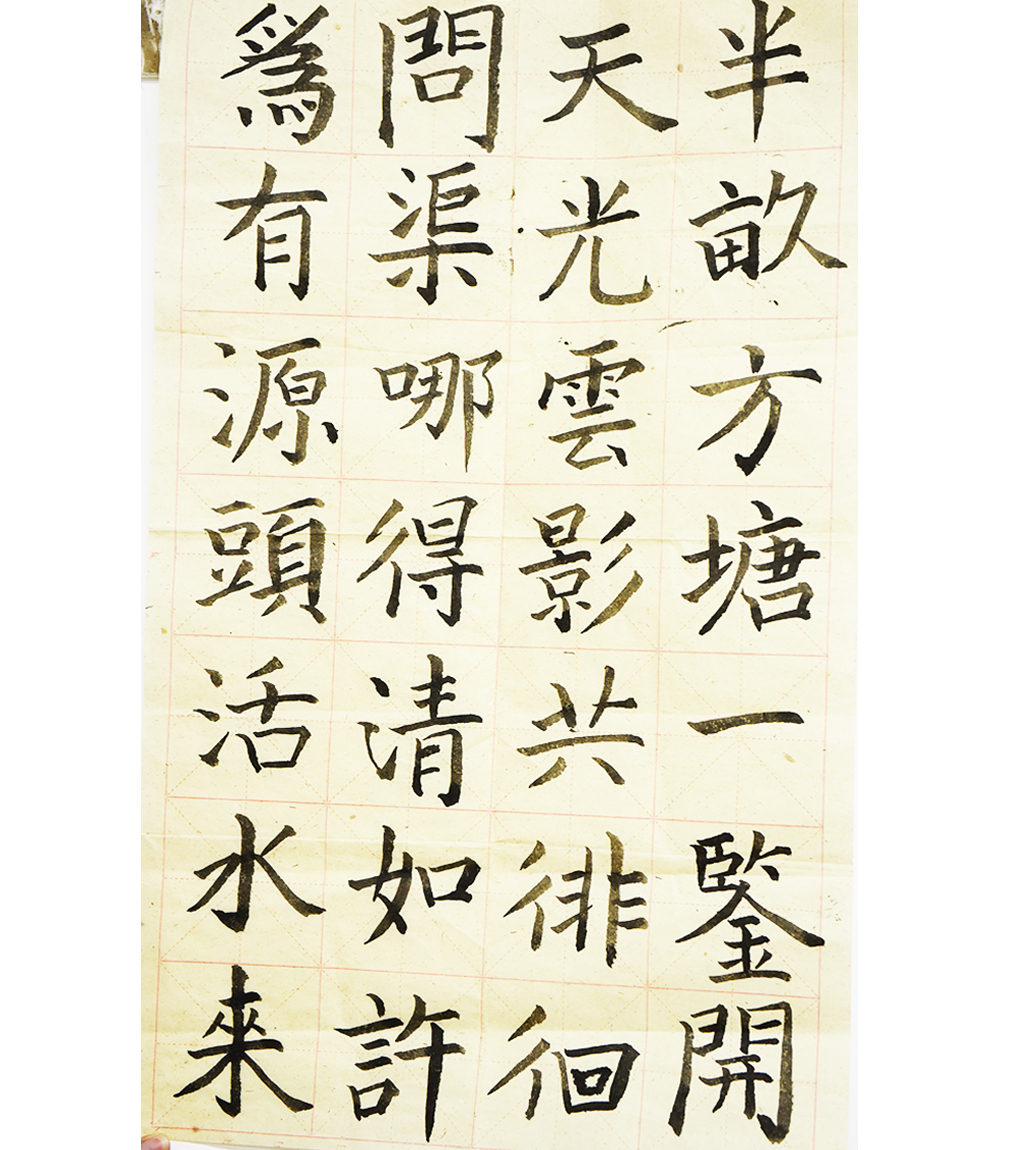 半畝方塘一鑒開
天光雲影共徘徊
問渠哪得清如許
爲有源頭活水來